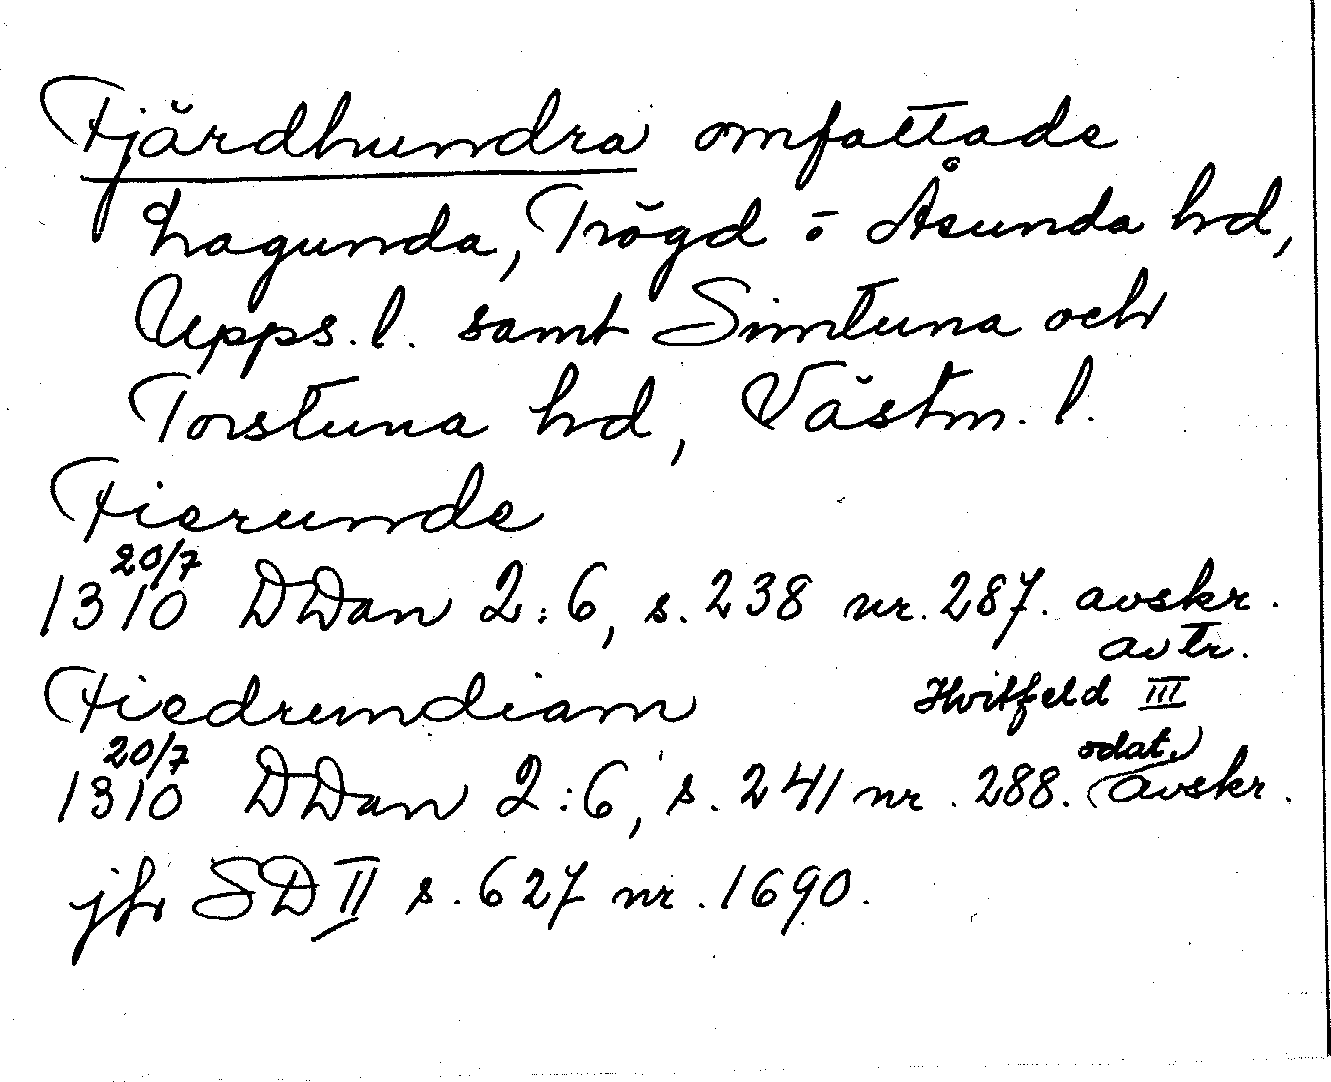 Fjärdhundra omfattade
Lagunda, Trögd o Åsunda hd,
Upps. l. samt Simtuna och
Torstuna hd, Västm. l.
Fierunde
1310 20/7 DDan 2:6, s. 238 nr. 287. avskr.
av tr.
Hvitfeld III
Fiedrundiam
1310 20/7 DDan 2:6, s. 241 nr. 288. (odat.) avskr.
jfr SD II s. 627 nr. 1690.